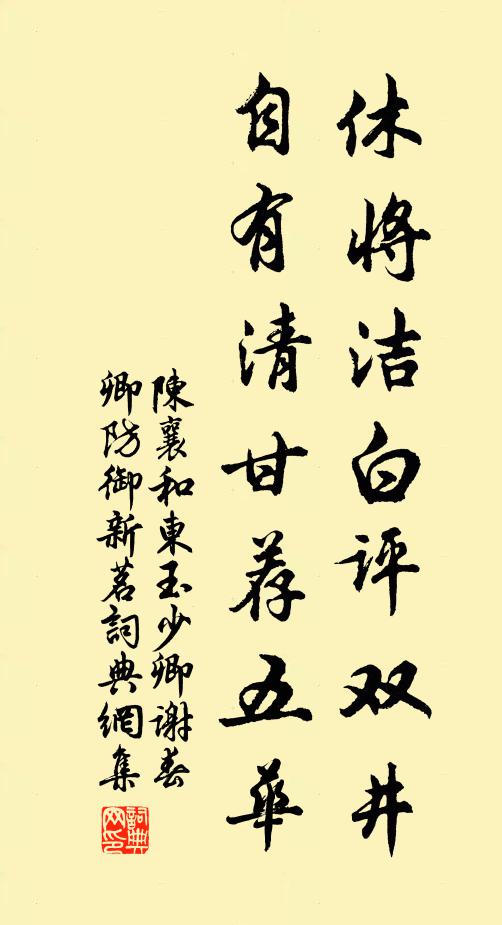 休将洁白评双井
自有清甘荐五華
陳襄和東玉少卿謝春
卿防御新茗詞典網集
詞典網印